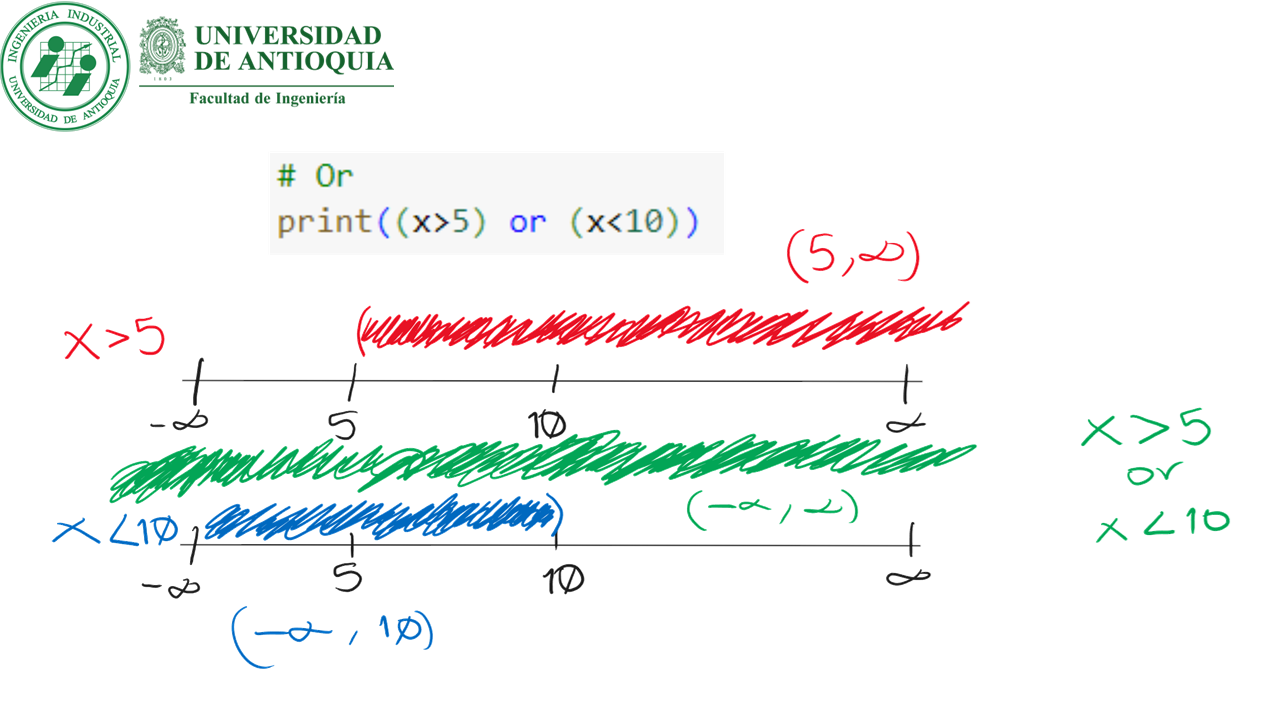 INGENIERIA INDUSTRIAL
UNIVERSIDAD DE ANTIOQUIA
UNIVERSIDAD
DE ANTIOQUIA
1803
Facultad de Ingeniería
# Or
print((x>5) or (x<10))
(5,∞)
x>5
-∞ 5 10 ∞
x>5
or
x<10
(-∞,∞)
x<10
-∞ 5 10 ∞
(-∞, 10)